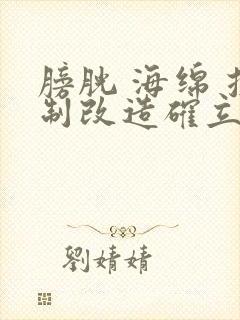 膀胱 海绵
制改造確立
劉婧婧